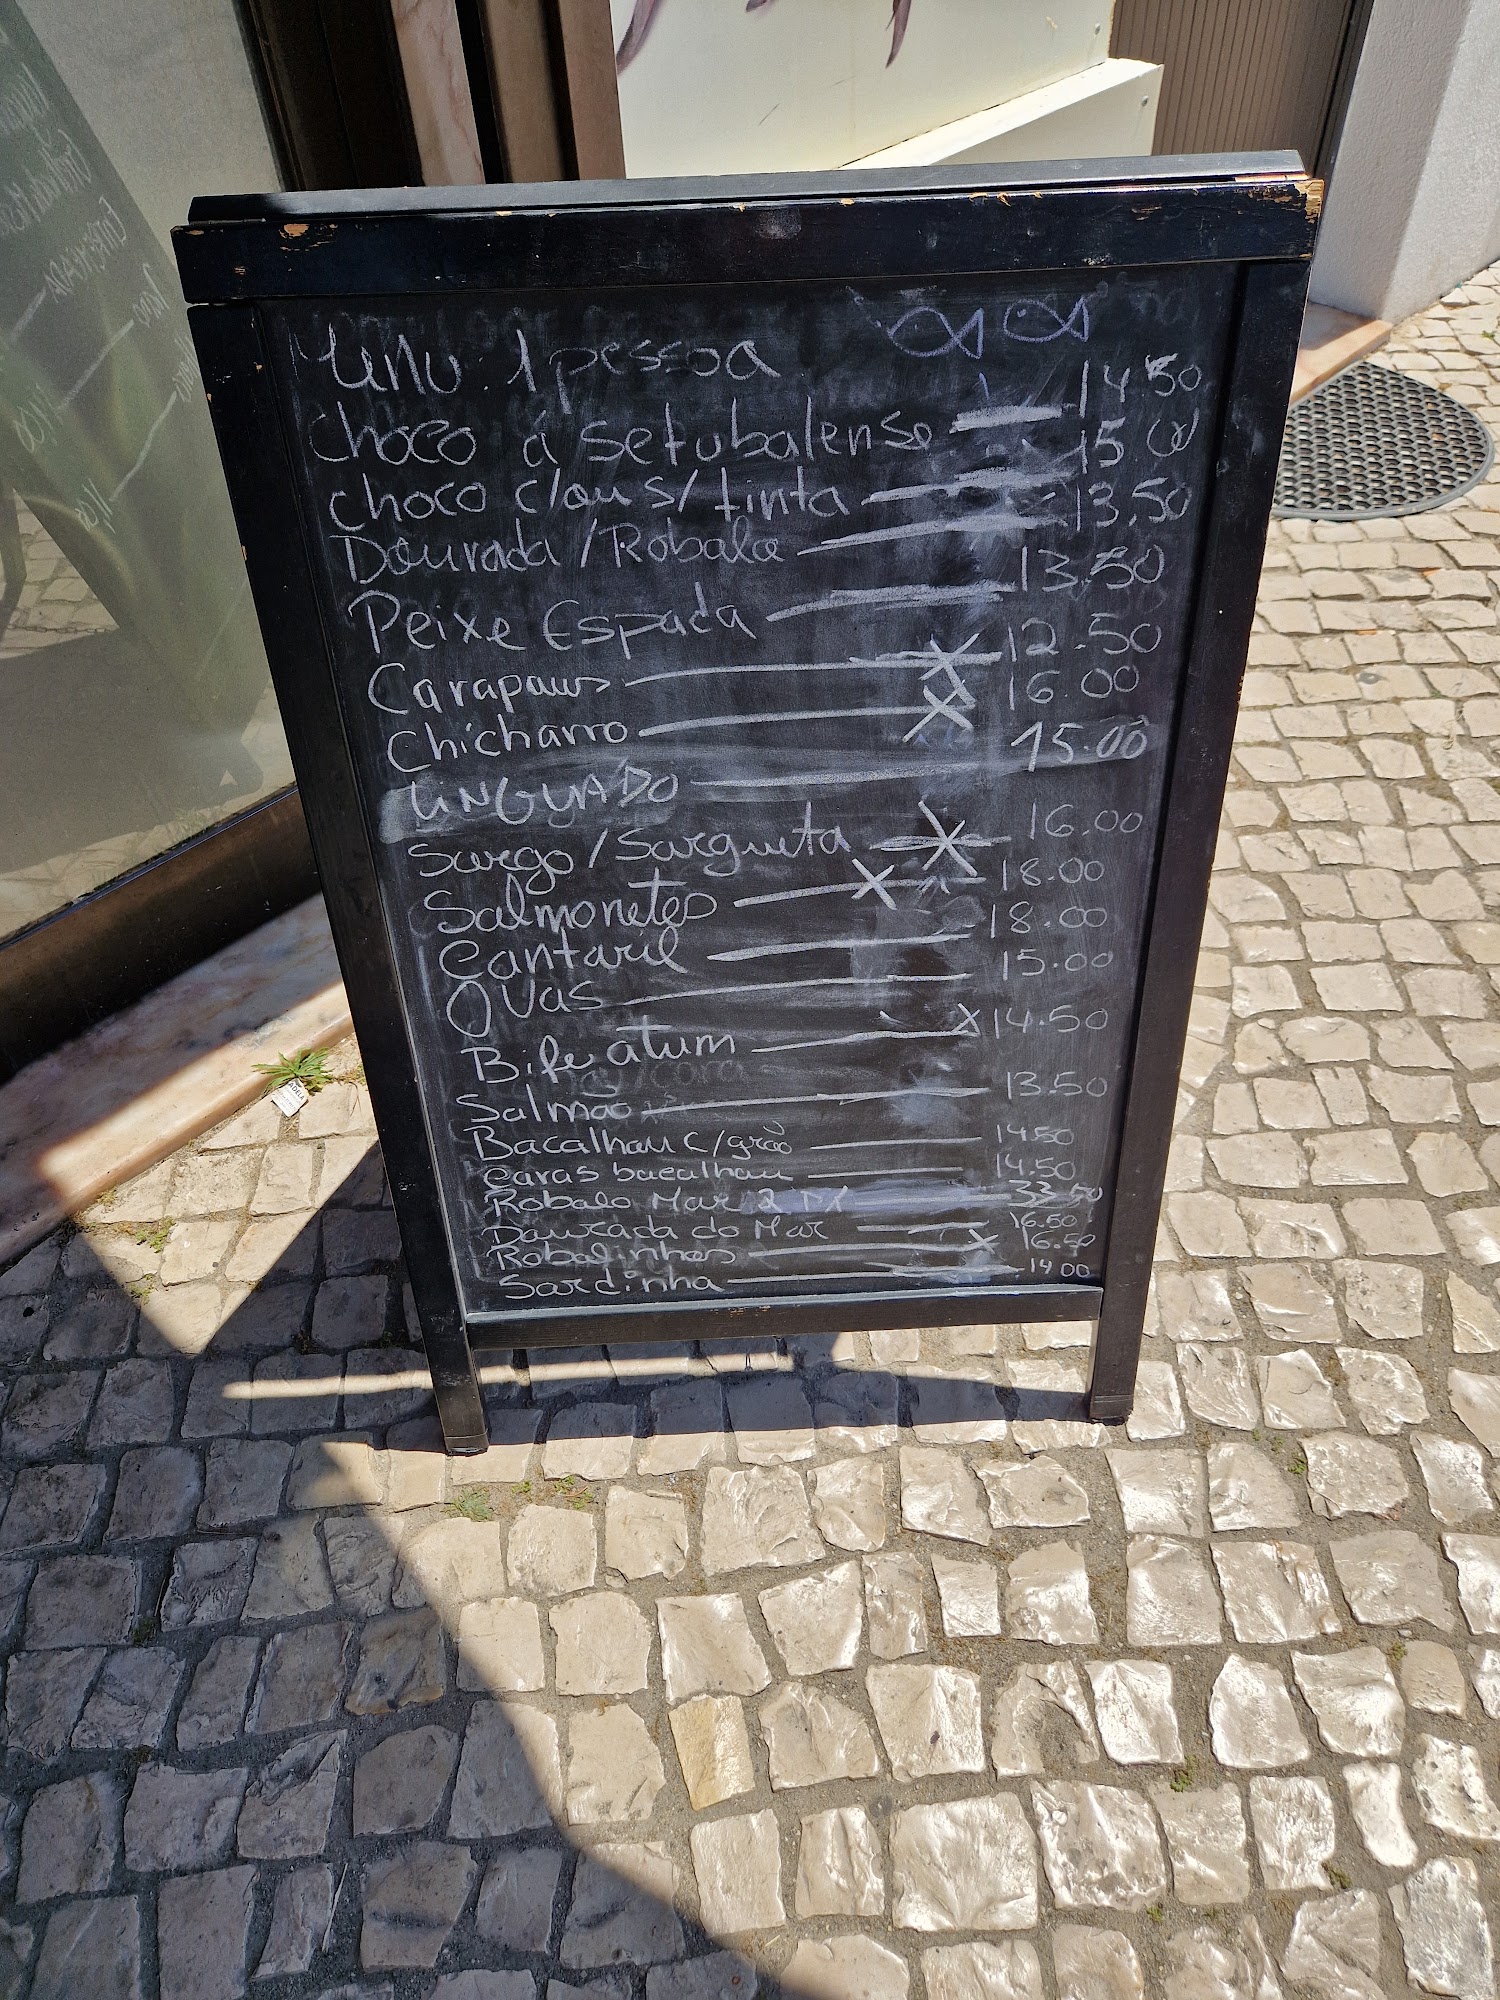 Menu. 1 pessoa
choco á setubalense 14.50
choco c/ou s/ tinta 15.00
Dourada /Robalo 13.50
Peixe Espada 13.50
Carapaus X 12.50
Chicharro X 16.00
LiNGUADO 15.00
Sargo/Sargueta X 16.00
Salmonetes X 18.00
Cantaril 18.00
OVas 15.00
Bife atum X 14.50
Salmão 13.50
Bacalhau c/grão 14.50
caras bacalhau 14.50
Robalo Mar 2 33.50
Dourada do Mar 16.50
Robalinhos X 16.50
Sardinha 14.00